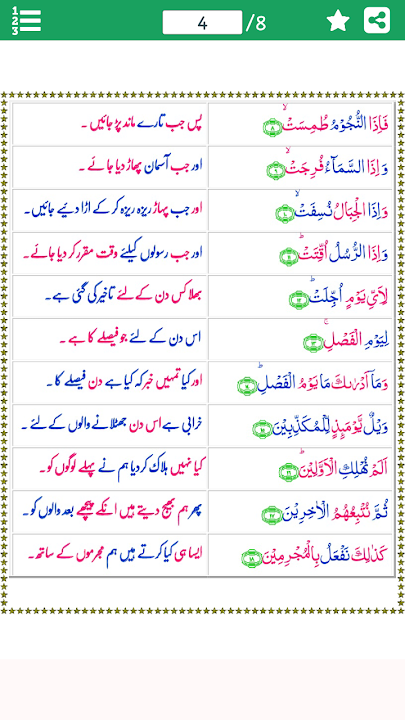 1
2
3
4 /8
فَاِذَا النُّجُوْمُ طُمِسَتْۙ ﴿۸﴾ پس جب تارے ماند پڑ جائیں ۔
وَاِذَا السَّمَآءُ فُرِجَتْۙ ﴿۹﴾ اور جب آسمان پھاڑ دیا جائے ۔
وَاِذَا الْجِبَالُ نُسِفَتْۙ ﴿۱۰﴾ اور جب پہاڑ ریزہ ریزہ کر کے اڑا دیے جائیں۔
وَاِذَا الرُّسُلُ اُقِّتَتْؕ ﴿۱۱﴾ اور جب رسولوں کیلئے وقت مقرر کر دیا جائے۔
لِاَىِّ يَوْمٍ اُجِّلَتْؕ ﴿۱۲﴾ بھلا کس دن کے لئے تاخیر کی گئی ہے۔
لِيَوْمِ الْفَصْلِۚ ﴿۱۳﴾ اس دن کے لئے جو فیصلے کا ہے ۔
وَمَاۤ اَدْرٰىكَ مَا يَوْمُ الْفَصْلِؕ اور کیا تمہیں خبر کہ کیا ہے دن فیصلے کا ۔
وَيْلٌ يَّوْمَىِٕذٍ لِّلْمُكَذِّبِيْنَ ﴿۱۵﴾ خرابی ہے اس دن جھٹلانے والوں کے لئے ۔
اَلَمْ نُهْلِكِ الْاَوَّلِيْنَؕ ﴿۱۶﴾ کیا نہیں ہلاک کردیا ہم نے پہلے لوگوں کو ۔
ثُمَّ نُتْبِعُهُمُ الْاٰخِرِيْنَ ﴿۱۷﴾ پھر ہم بھیج دیتے ہیں انکے پیچھے بعد والوں کو ۔
كَذٰلِكَ نَفْعَلُ بِالْمُجْرِمِيْنَ ﴿۱۸﴾ ایسا ہی کیا کرتے ہیں ہم مجرموں کے ساتھ۔